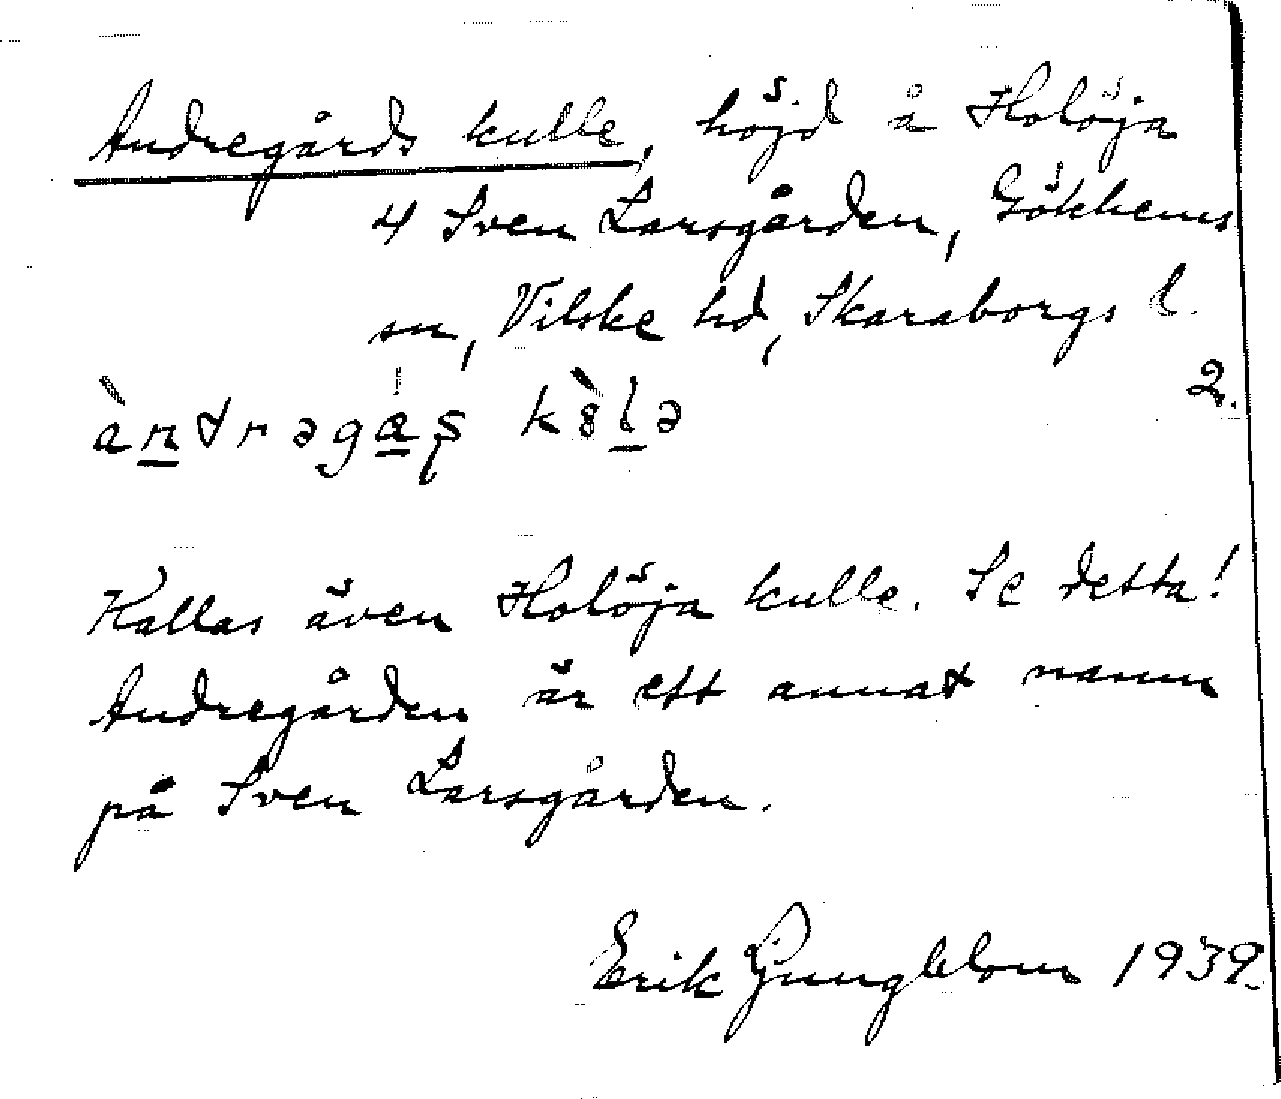 Andregårds kulle, höjd å Holöja
4 Sven Larsgården, Gökhems
sn, Vilske hd, Skaraborgs l.
2.
àndragas kùlə
Kallas även Holöja kulle. Se detta!
Andregården är ett annat namn
på Sven Larsgården.
Erik Ljungblom 1939.